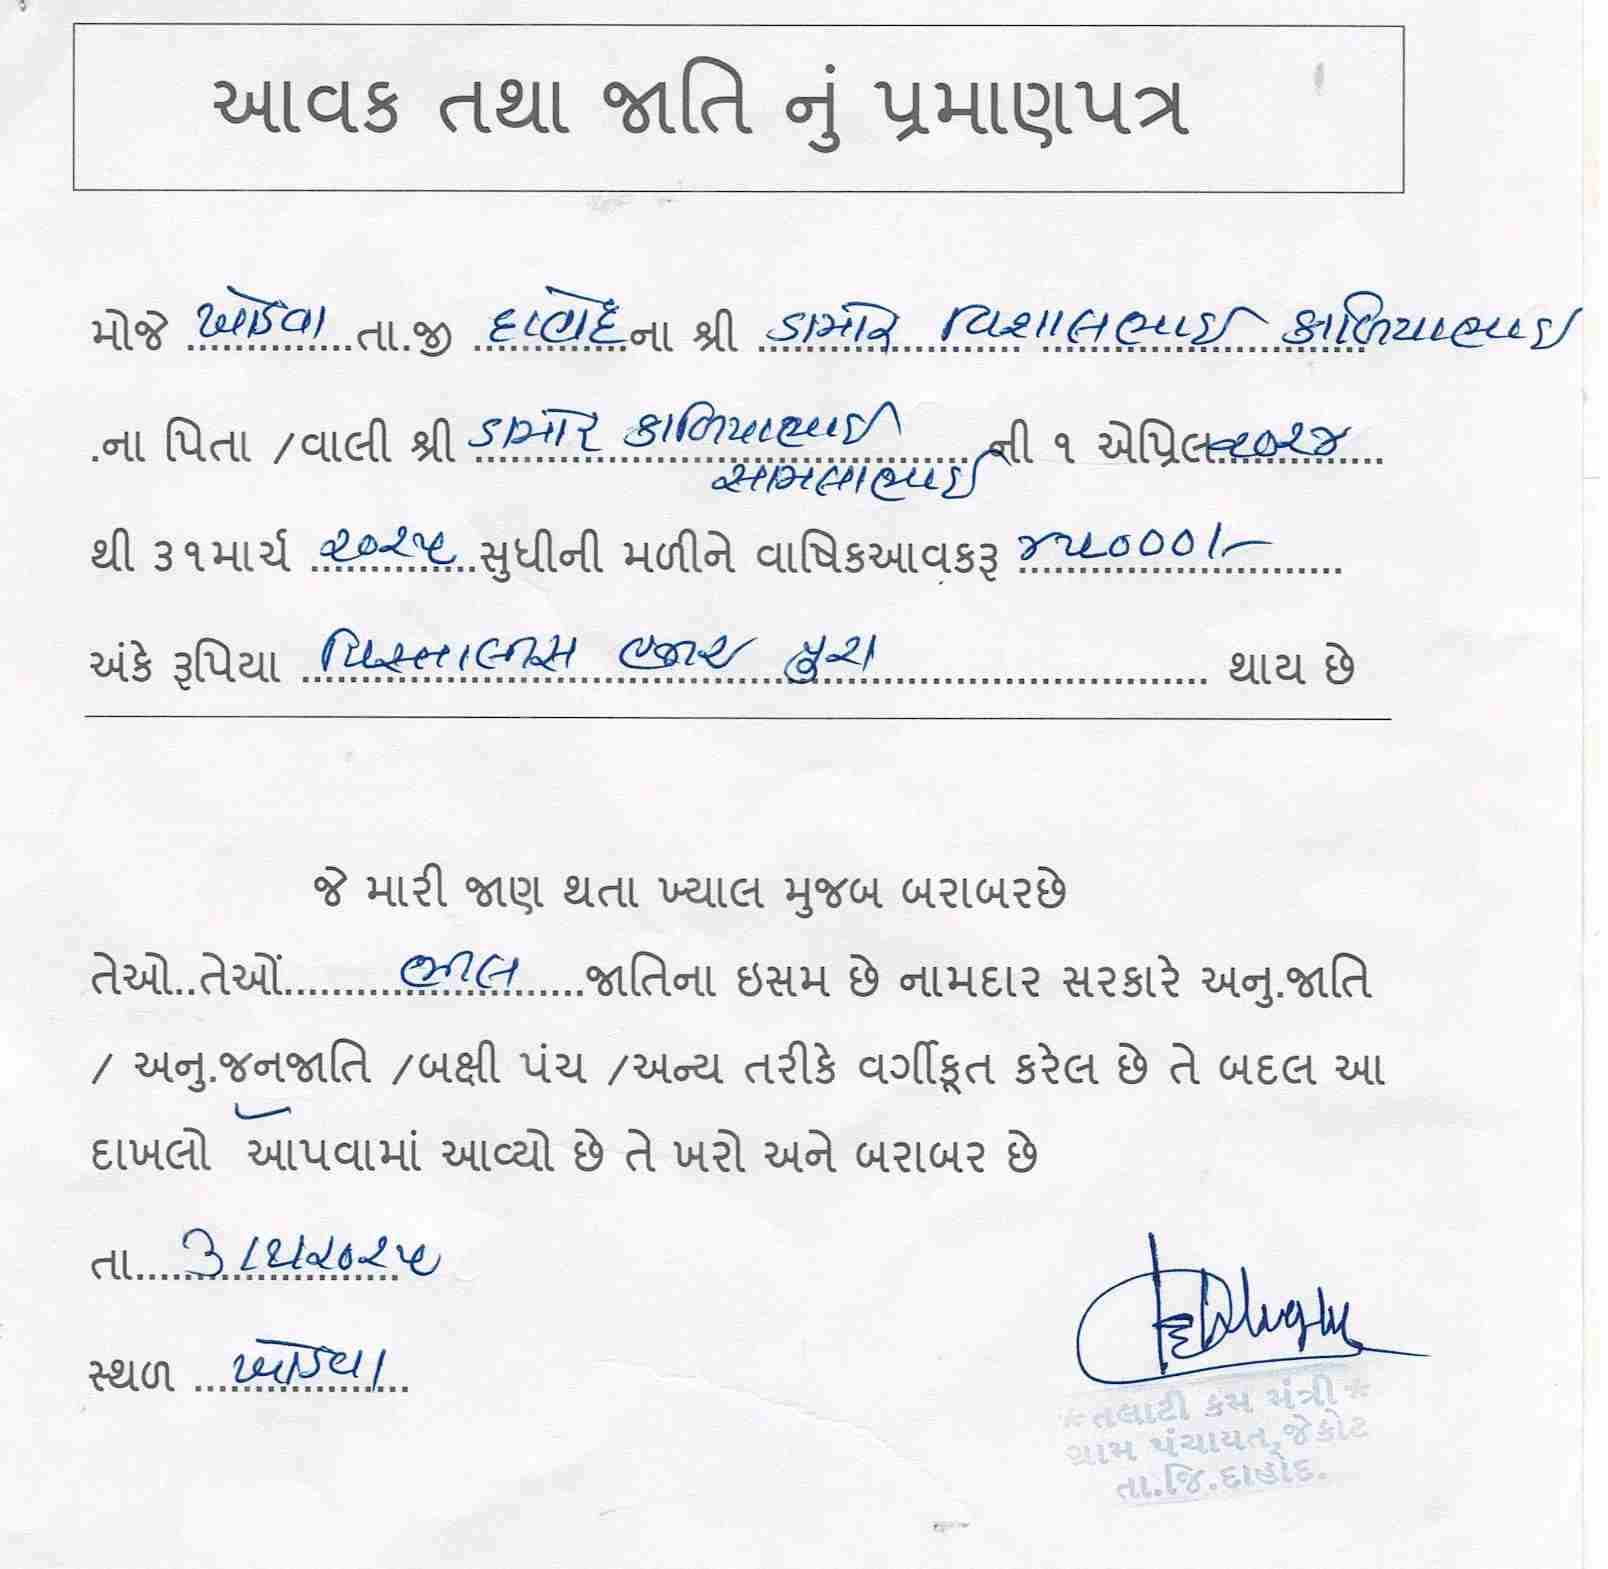 આવક તથા જાતિ નું પ્રમાણપત્ર
મોજે ખોડવા તા.જી દાહોદ ના શ્રી ડામોર વિશાલભાઈ કાળિયાભાઈ
.ના પિતા /વાલી શ્રી ડામોર કાળિયાભાઈ ની ૧ એપ્રિલ ૨૦૨૪
સામલાભાઈ
થી ૩૧માર્ચ ૨૦૨૫ સુધીની મળીને વાષિકઆવકરૂ ૪૫૦૦૦/-
અંકે રૂપિયા પિસ્તાલીસ હજાર પુરા થાય છે
જે મારી જાણ થતા ખ્યાલ મુજબ બરાબરછે
તેઓ..તેઓં ભીલ જાતિના ઇસમ છે નામદાર સરકારે અનુ.જાતિ
/ અનુ.જનજાતિ /બક્ષી પંચ /અન્ય તરીકે વર્ગીકૂત કરેલ છે તે બદલ આ
દાખલો આપવામાં આવ્યો છે તે ખરો અને બરાબર છે
તા. ૩/૫/૨૦૨૫
સ્થળ ખોડવા
*તલાટી કમ મંત્રી*
ગ્રામ પંચાયત,જેકોટ
તા.જિ.દાહોદ.